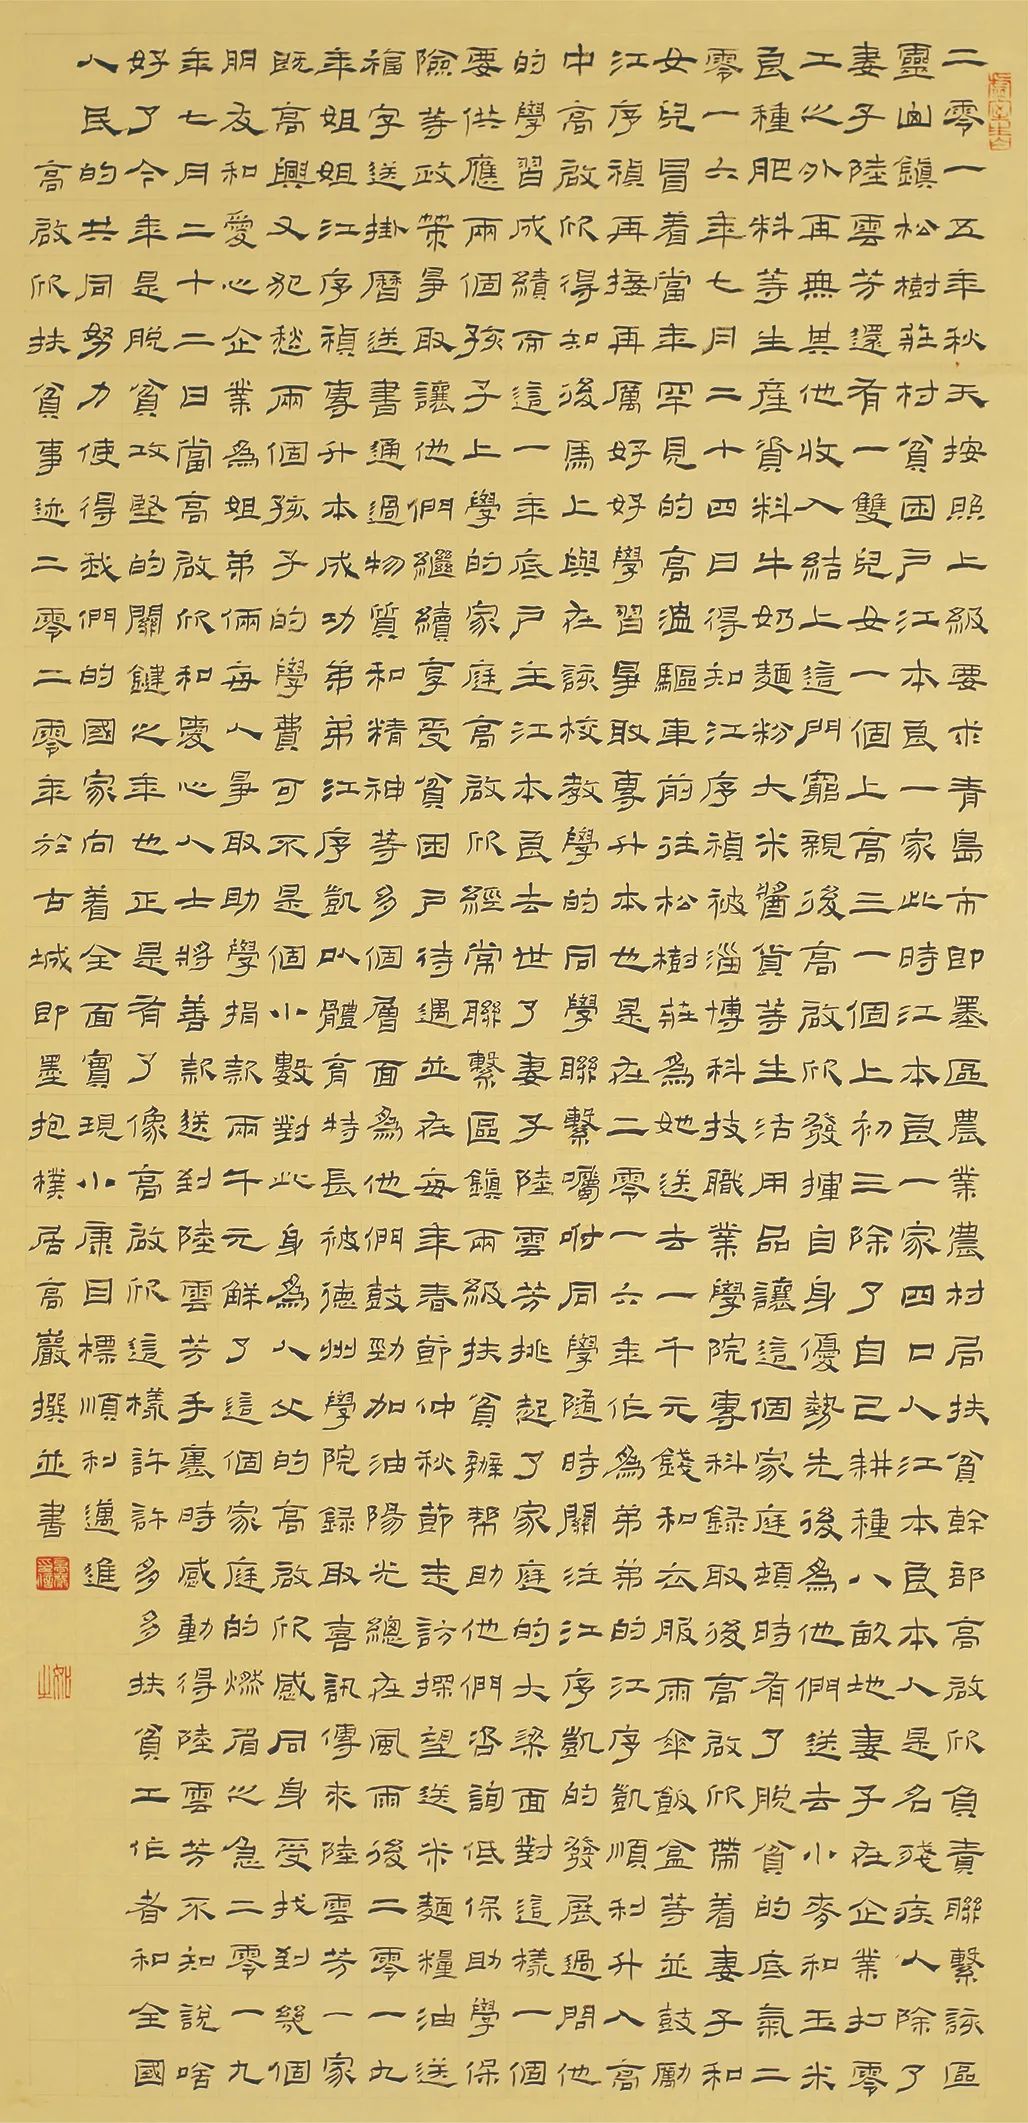 二零一五年秋天按照上級要求青島市即墨區農業農村局扶貧幹部高啟欣負責聯繫該區
靈山鎮松樹莊村貧困戶江本良一家此時江本良一家四口人江本良本人是名殘疾人除了
妻子陸雲芳還有一雙兒女一個上高三一個上初三除了自己耕種八畝地妻子在企業打零
工之外再無其他收入結上這門窮親後高啟欣發揮自身優勢先後為他們送去小麥和玉米
良種肥料等生產資料牛奶麵粉大米醬貨等生活用品讓這個家庭頓時有了脫貧的底氣二
零一六年七月二十四日得知江序禎被淄博科技職業學院專科錄取後高啟欣帶着妻子和
女兒冒着當年罕見的高溫驅車前往松樹莊為她送去一千元錢和衣服雨傘飯盒等並鼓勵
江序禎再接再厲好好學習爭取專升本也是在二零一六年作為弟弟的江序凱順利升入高
中高啟欣得知後馬上與在該校教學的同學聯繫囑咐同學隨時關注江序凱的發展過問他
的學習成績而這一年底戶主江本良去世了妻子陸雲芳挑起了家庭的大梁面對這樣一個
要供應兩個孩子上學的家庭高啟欣經常聯繫區鎮兩級扶貧辦幫助他們咨詢低保助學保
險等政策爭取讓他們繼續享受貧困戶待遇並在每年春節仲秋節走訪探望送米麵糧油送
福字送掛曆送書通過物質和精神等多個層面為他們鼓勁加油陽光總在風雨後二零一九
年姐姐江序禎專升本成功弟弟江序凱以體育特長被德州學院錄取喜訊傳來陸雲芳一家
既高興又犯愁兩個孩子的學費可不是個小數對此身為人父的高啟欣感同身受找到幾個
朋友和愛心企業為姐弟倆每人爭取助學捐款兩千元解了這個家庭的燃眉之急二零一九
年七月二十二日當高啟欣和愛心人士將善款送到陸雲芳手裏時感動得陸雲芳不知說啥
好了今年是脫貧攻堅的關鍵之年也正是有了像高啟欣這樣許許多多扶貧工作者和全國
人民的共同努力使得我們的國家向着全面實現小康目標順利邁進
高啟欣扶貧事迹二零二零年於古城即墨抱樸居高巖撰並書